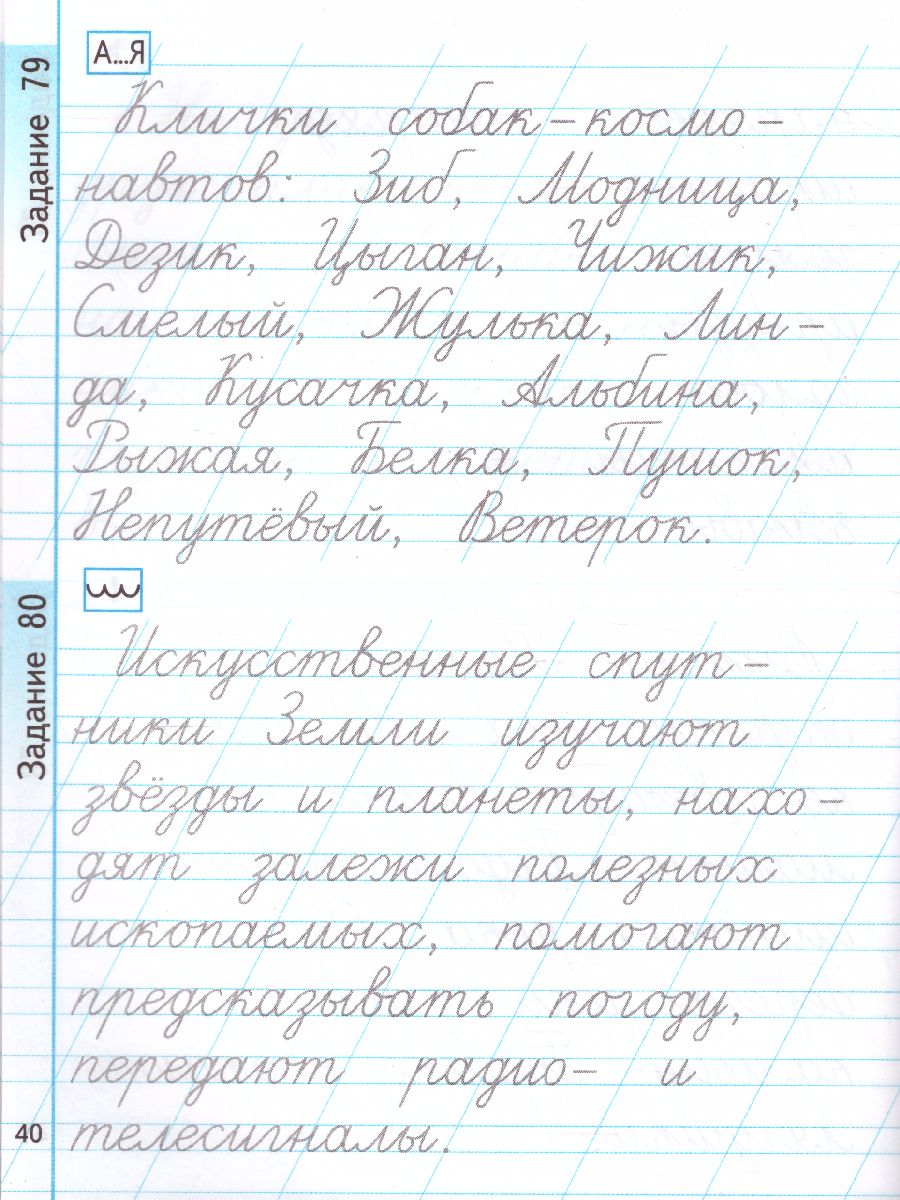 Задание 79
А...Я
Клички собак-космо-
навтов: Зиб, Модница,
Дезик, Цыган, Чижик,
Смелый, Жулька, Лин-
да, Кусачка, Альбина,
Рыжая, Белка, Пушок,
Непутёвый, Ветерок.
Задание 80
Искусственные спут-
ники Земли изучают
звёзды и планеты, нахо-
дят залежи полезных
ископаемых, помогают
предсказывать погоду,
передают радио- и
телесигналы.
40